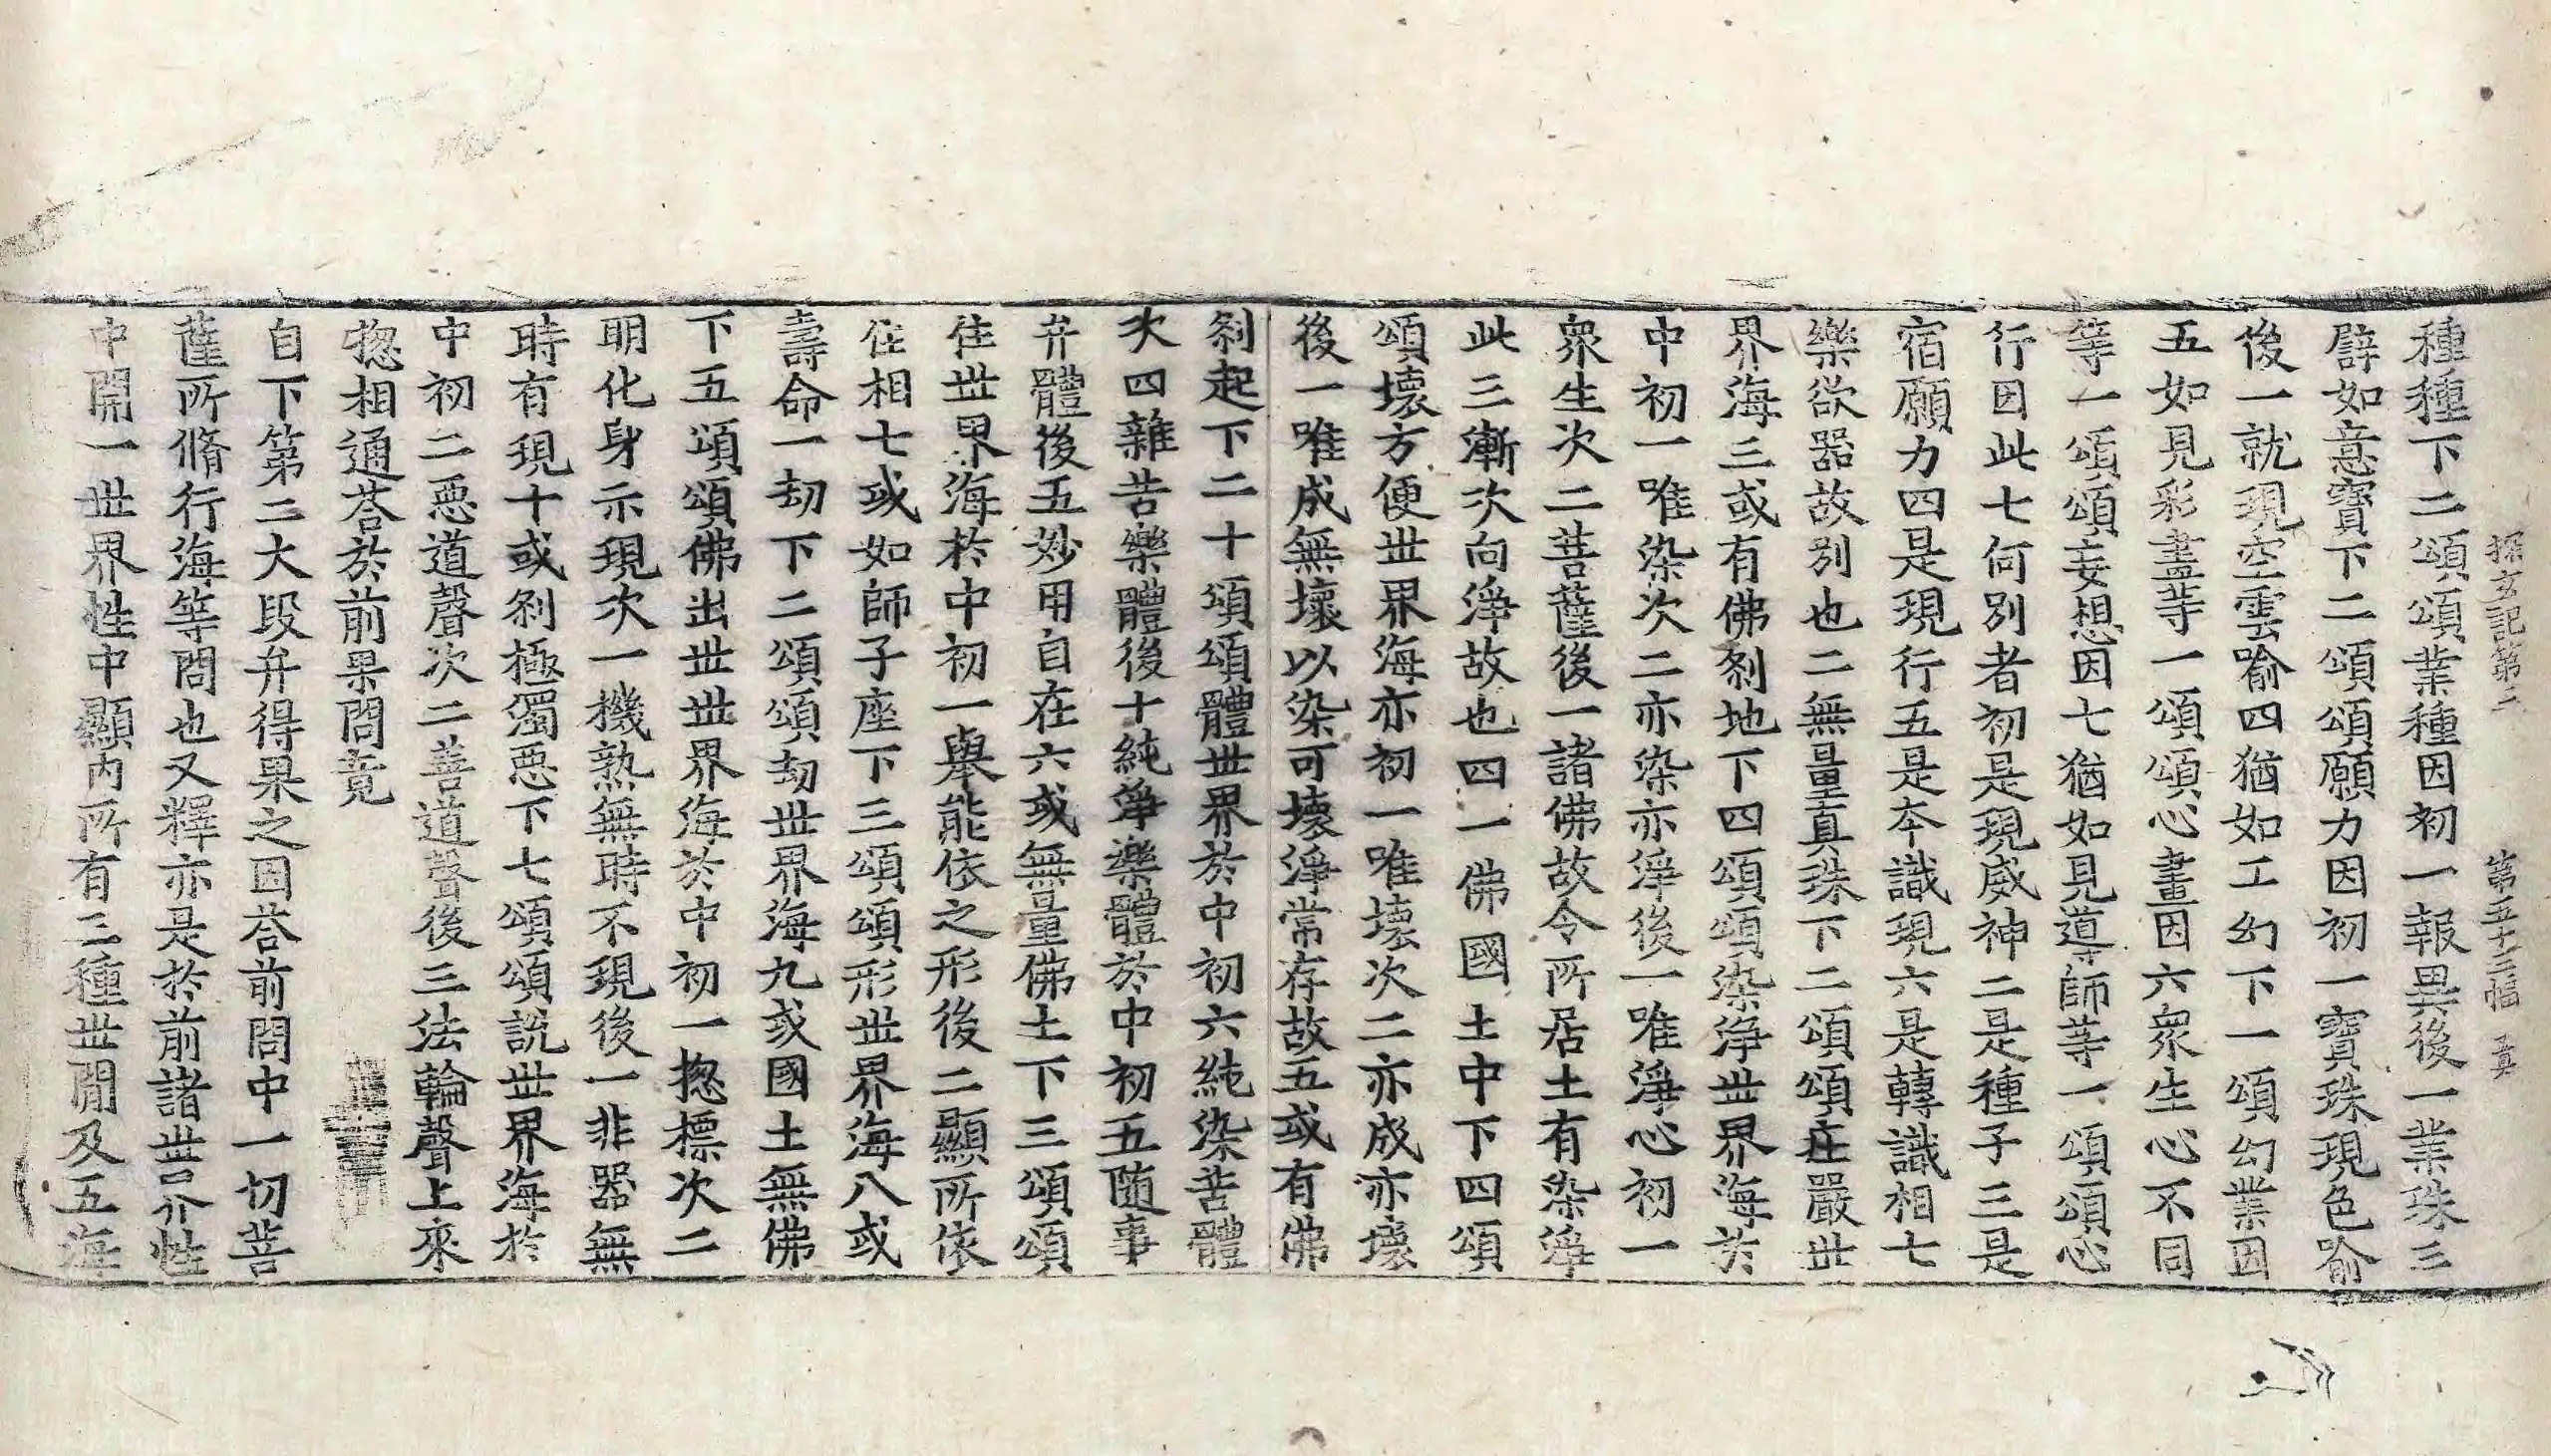 探玄記第三 第五十三幅 真
種種下二頌頌業種因初一報異後一業珠三
譬如意寶下二頌頌願力因初一寶珠現色喻
後一就現空雲喻四猶如工幻下一頌幻業因
五如見彩畫等一頌頌心畫因六衆生心不同
等一頌頌妄想因七猶如見導師等一頌頌心
行因此七何別者初是現威神二是種子三是
宿願力四是現行五是本識現六是轉識相七
樂欲器故別也二無量真珠下二頌頌庄嚴世
界海三或有佛剎地下四頌頌染淨世界海於
中初一唯染次二亦染亦淨後一唯淨心初一
衆生次二菩薩後一諸佛故令所居土有染淨
此三漸次向淨故也四一佛國土中下四頌
頌壞方便世界海亦初一唯壞次二亦成亦壞
後一唯成無壞以染可壞淨常存故五或有佛
剎起下二十頌頌體世界於中初六純染苦體
次四雜苦樂體後十純淨樂體於中初五随事
弁體後五妙用自在六或無量佛土下三頌頌
住世界海於中初一舉能依之形後二顯所依
住相七或如師子座下三頌頌形世界海八或
壽命一劫下二頌頌劫世界海九或國土無佛
下五頌頌佛出世世界海於中初一揔標次二
明化身示現次一機熟無時不現後一非器無
時有現十或剎極濁惡下七頌頌說世界海於
中初二惡道聲次二善道聲後三法輪聲上來
揔相通荅於前果問竟
自下第二大段弁得果之因荅前問中一切菩
薩所脩行海等問也又釋亦是於前諸世界性
中開一世界性中顯內所有三種世間及五海